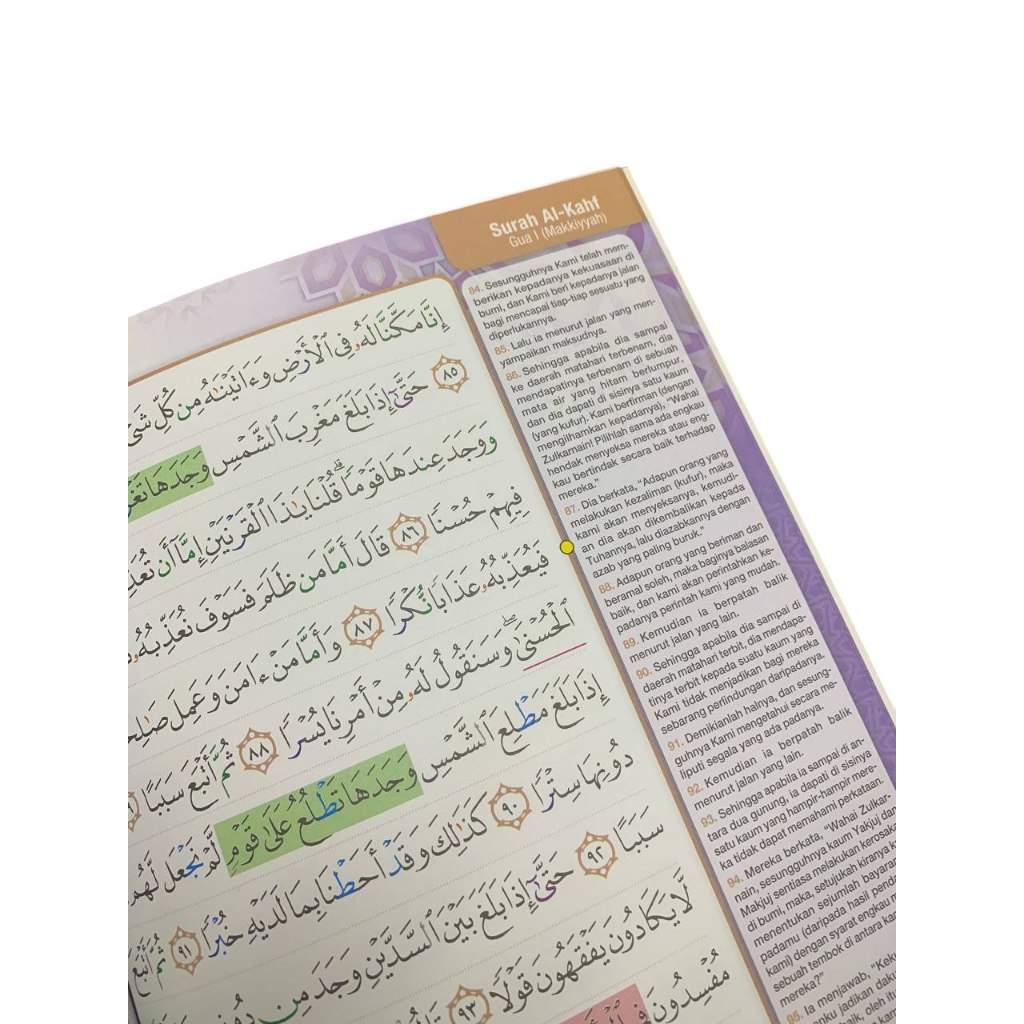 Surah Al-Kahf
Gua I (Makkiyyah)
إِنَّا مَكَّنَّا لَهُۥ فِى ٱلْأَرْضِ وَءَاتَيْنَـٰهُ مِن كُلِّ
٨٥ حَتَّىٰٓ إِذَا بَلَغَ مَغْرِبَ ٱلشَّمْسِ وَجَدَهَا
وَوَجَدَ عِندَهَا قَوْمًا ۗ قُلْنَا يَـٰذَا ٱلْقَرْنَيْنِ إِمَّآ أَن
فِيهِمْ حُسْنًا ٨٦ قَالَ أَمَّا مَن ظَلَمَ فَسَوْفَ نُعَذِّبُهُۥ
فَيُعَذِّبُهُۥ عَذَابًا نُّكْرًا ٨٧ وَأَمَّا مَنْ ءَامَنَ وَعَمِلَ
ٱلْحُسْنَىٰ ۖ وَسَنَقُولُ لَهُۥ مِنْ أَمْرِنَا يُسْرًا ٨٨ ثُمَّ أَتْبَعَ سَبَبًا
إِذَا بَلَغَ مَطْلِعَ ٱلشَّمْسِ وَجَدَهَا تَطْلُعُ عَلَىٰ قَوْمٍ لَّمْ نَجْعَل
دُونِهَا سِتْرًا ٩٠ كَذَٰلِكَ وَقَدْ أَحَطْنَا بِمَا لَدَيْهِ خُبْرًا ٩١ ثُمَّ
سَبَبًا ٩٢ حَتَّىٰٓ إِذَا بَلَغَ بَيْنَ ٱلسَّدَّيْنِ وَجَدَ مِن
لَّا يَكَادُونَ يَفْقَهُونَ قَوْلًا ٩٣
مُفْسِدُونَ
84. Sesungguhnya Kami telah mem-
berikan kepadanya kekuasaan di
bumi, dan Kami beri kepadanya jalan
bagi mencapai tiap-tiap sesuatu yang
diperlukannya.
85. Lalu ia menurut jalan yang men-
yampaikan maksudnya.
86. Sehingga apabila dia sampai
ke daerah matahari terbenam, dia
mendapatinya terbenam di sebuah
mata air yang hitam berlumpur,
dan dia dapati di sisinya satu kaum
(yang kufur). Kami berfirman (dengan
mengilhamkan kepadanya), "Wahai
Zulkarnain! Pilihlah sama ada engkau
hendak menyeksa mereka atau eng-
kau bertindak secara baik terhadap
mereka."
87. Dia berkata, "Adapun orang yang
melakukan kezaliman (kufur), maka
kami akan menyeksanya, kemudi-
an dia akan dikembalikan kepada
Tuhannya, lalu diazabkannya dengan
azab yang paling buruk."
88. Adapun orang yang beriman dan
beramal soleh, maka baginya balasan
baik, dan kami akan perintahkan ke-
padanya perintah kami yang mudah.
89. Kemudian ia berpatah balik
menurut jalan yang lain.
90. Sehingga apabila dia sampai di
daerah matahari terbit, dia mendapa-
tinya terbit kepada suatu kaum yang
Kami tidak menjadikan bagi mereka
sebarang perlindungan daripadanya.
91. Demikianlah halnya, dan sesung-
guhnya Kami mengetahui secara me-
liputi segala yang ada padanya.
92. Kemudian ia berpatah balik
menurut jalan yang lain.
93. Sehingga apabila ia sampai di an-
tara dua gunung, ia dapati di sisinya
satu kaum yang hampir-hampir mere-
ka tidak dapat memahami perkataan.
94. Mereka berkata, "Wahai Zulkar-
nain, sesungguhnya kaum Yakjuj dan
Makjuj sentiasa melakukan
di bumi, maka, setujukah kiranya
menentukan sejumlah
padamu (daripada hasil
kami) dengan syarat engkau
sebuah tembok di antara
mereka?"
95. Ia menjawab,
jadikan
oleh